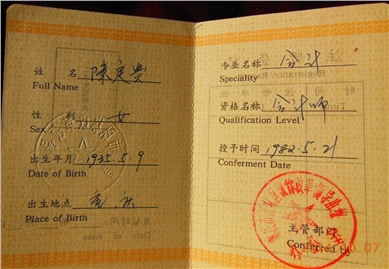 姓 名 陳定贵
Full Name
性 别 女
Sex
出生年月 1935.5.9
Date of Birth
出生地点 重庆
Place of Birth
专业名称 会计
Speciality
资格名称 会计师
Qualification Level
授予时间 1982.5.21
Conferment Date
主管部门
Conferred by